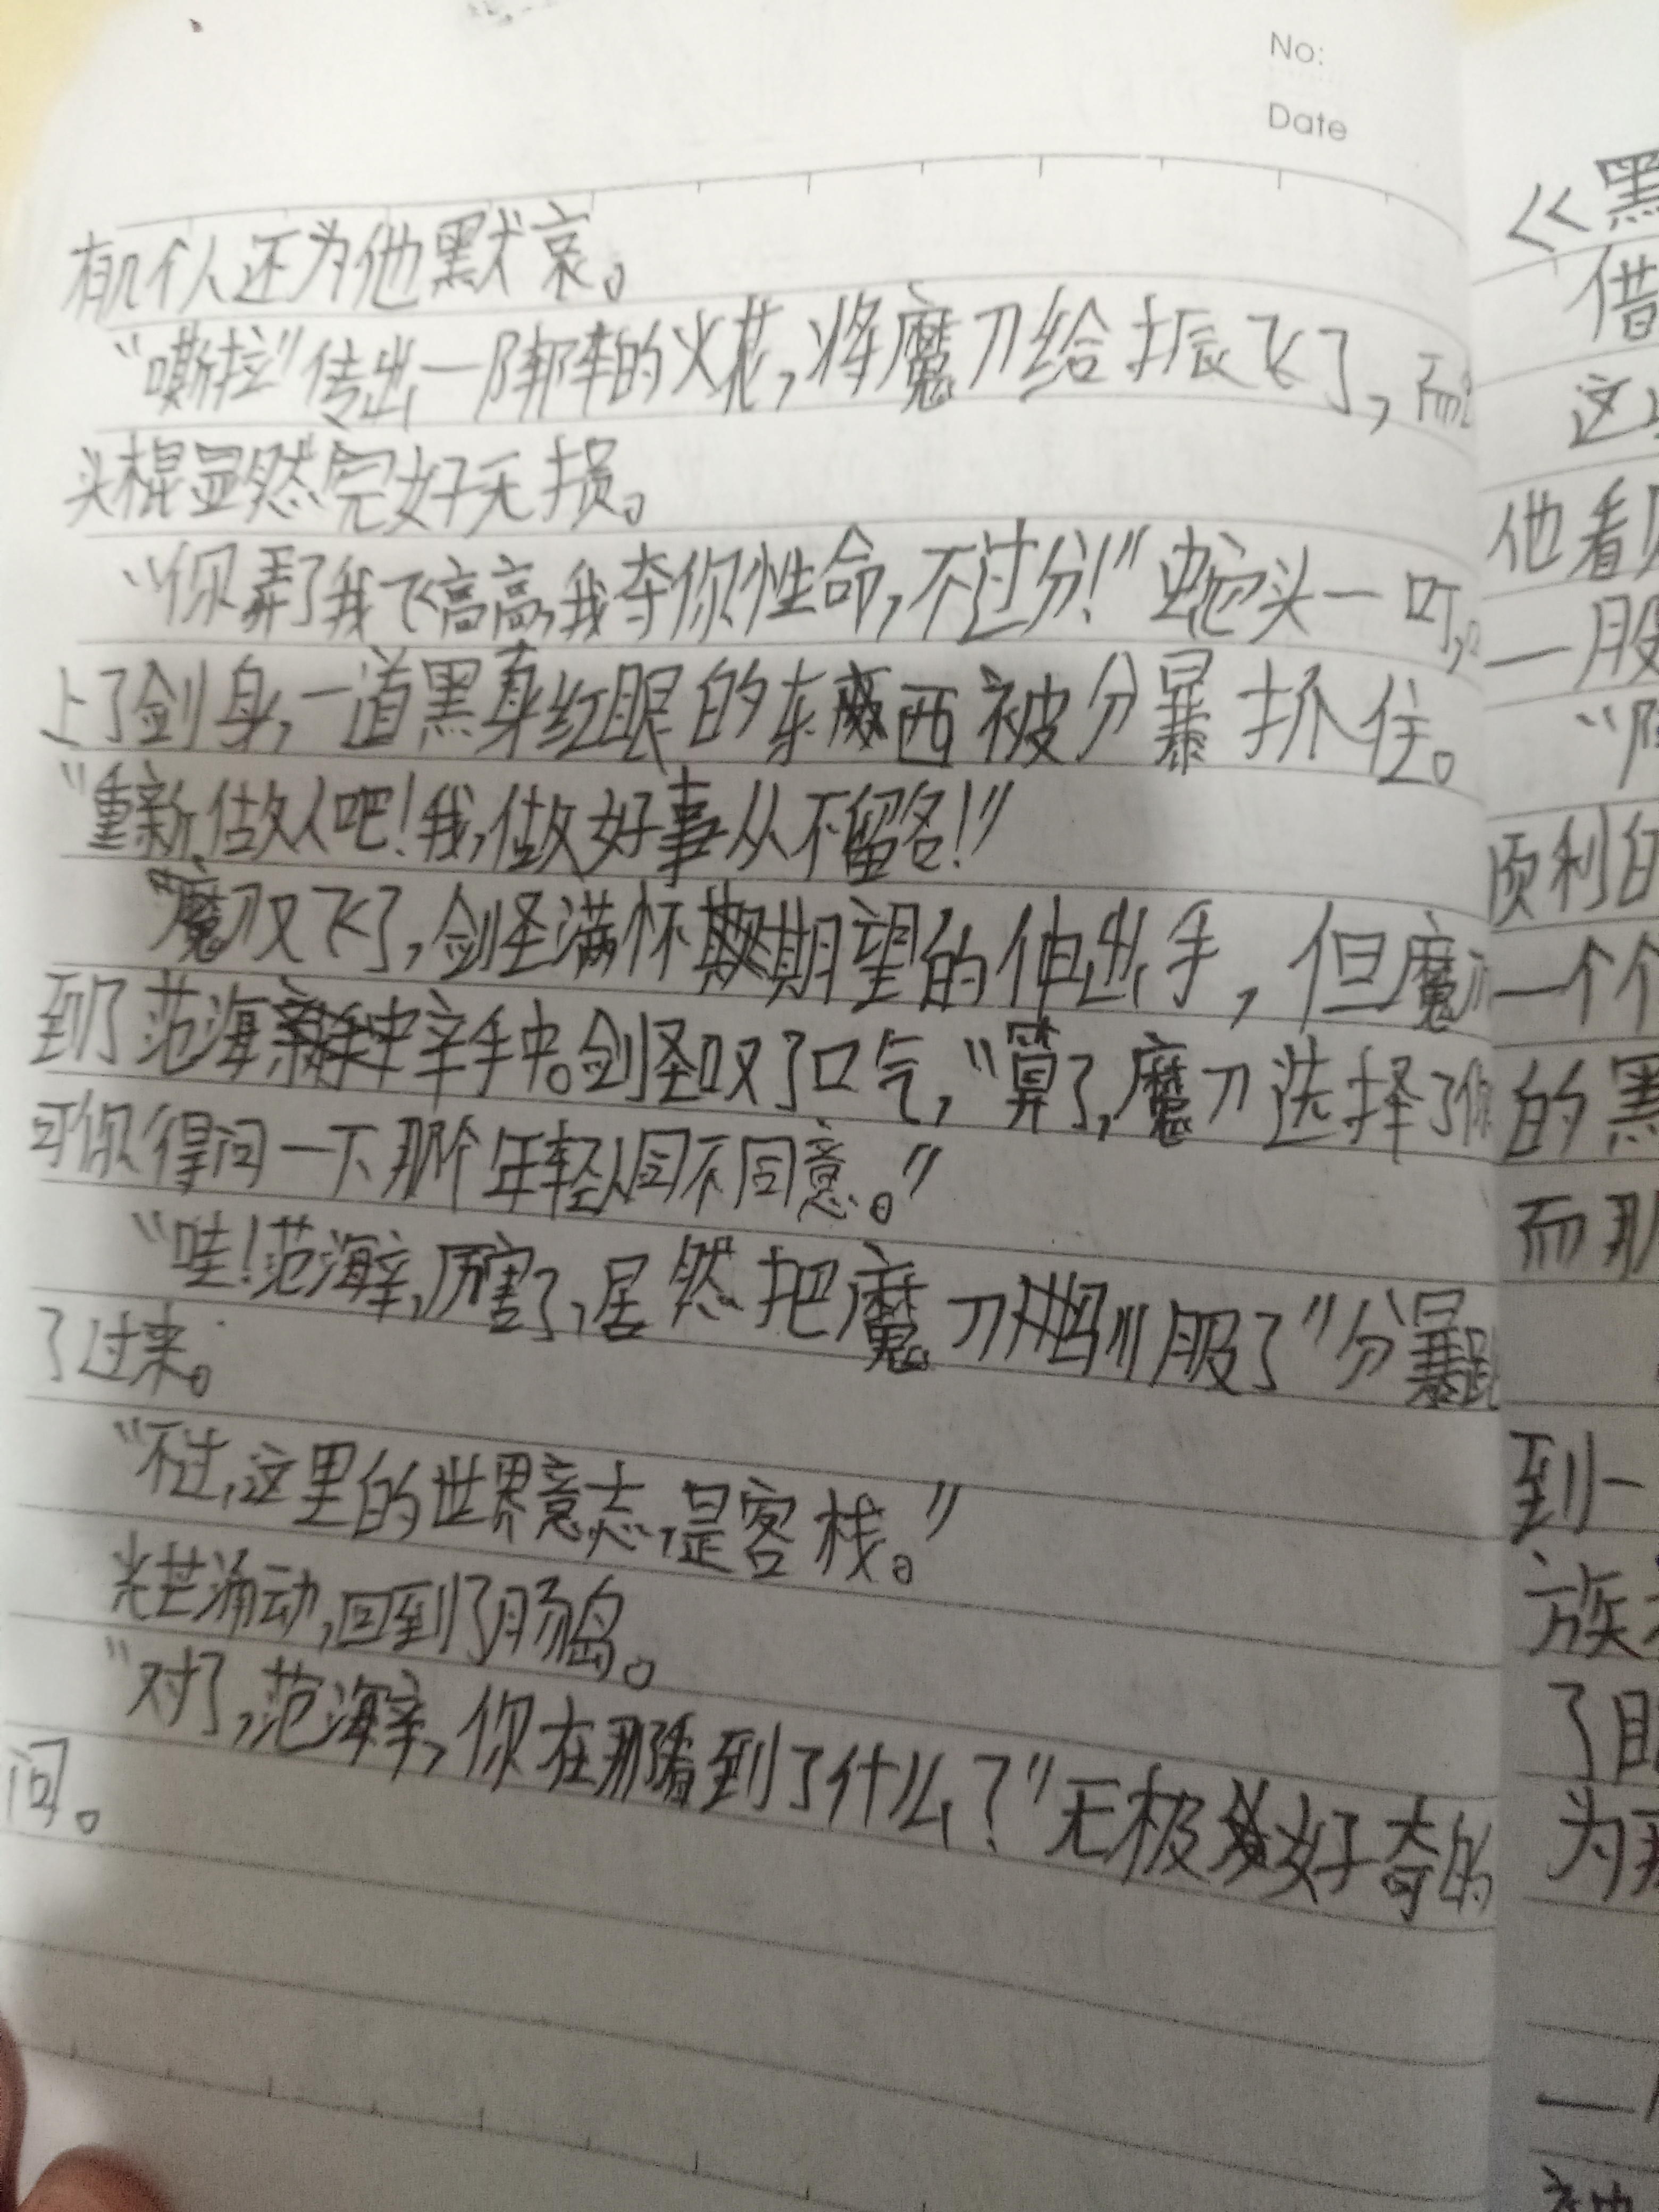 No:
Date
有几个人还为他默哀。
“嘶拉”传出一阵阵的火花，将魔刀给振飞了，而
头棍显然完好无损。
“你弄了我飞高高，我夺你性命，不过分！”蛇头一叮，
上了剑身，一道黑身红眼的东西被分暴抓住。
“重新做人吧！我，做好事从不留名！”
魔刀又飞了，剑怪满怀期望的伸出手，但魔
到了范海辛手中。剑怪叹了口气，“算了，魔刀选择了你
可你得问一下那个年轻人同不同意。”
“哇！范海辛，厉害了，居然把魔刀驯服了”分暴
了过来。
“不过，这里的世界意志，是客栈。”
光芒涌动，回到了肠岛。
“对了，范海辛，你在那看到了什么？”无极好奇的
问。
《黑
借
这
他看
一股
“
利的
一个个
的黑
而那
到一
族
了
为